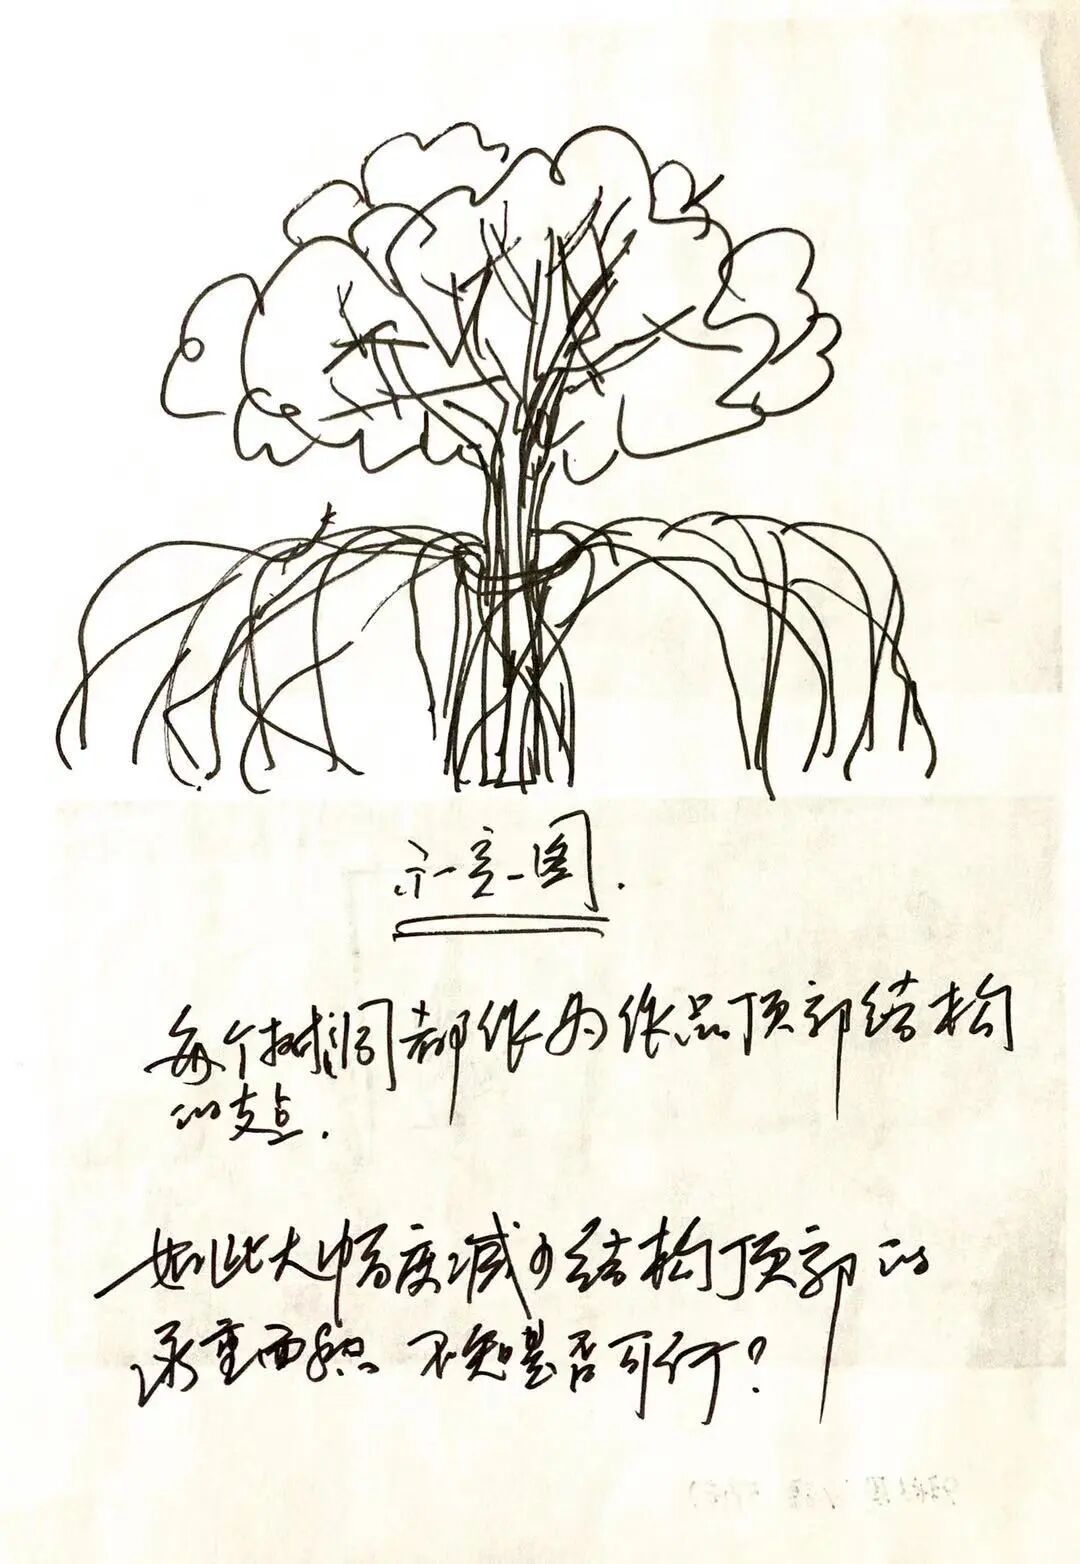 示意图.
每个树洞都作为作品顶部结构
的支点.
如此大幅度减少结构顶部的
承重面积 不知是否可行?